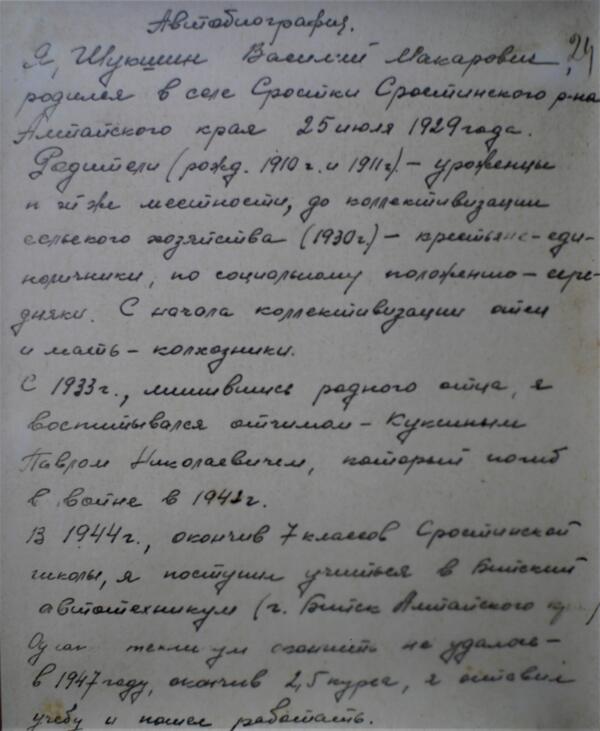 Автобиография.
Я, Шукшин Василий Макарович, 24
родился в селе Сростки Сростинского р-на
Алтайского края 25 июля 1929 года.
Родители (рожд. 1910 г. и 1911 г.) – уроженцы
местности, до коллективизации
сельского хозяйства (1930 г.) – крестьяне-еди-
ноличники, по социальному положению – серед-
дняки. С начала коллективизации отец
и мать – колхозники.
С 1933 г., лишившись родного отца, я
воспитывался отчимом – Куксиным
Павлом Николаевичем, который погиб
в войне в 1942 г.
В 1944 г., окончив 7 классов Сростинской
школы, я поступил учиться в Бийский
автотехникум (г. Бийск Алтайского
окончить не удалось –
в 1947 году, окончив 2,5 курса, я оставил
учебу и пошел работать.